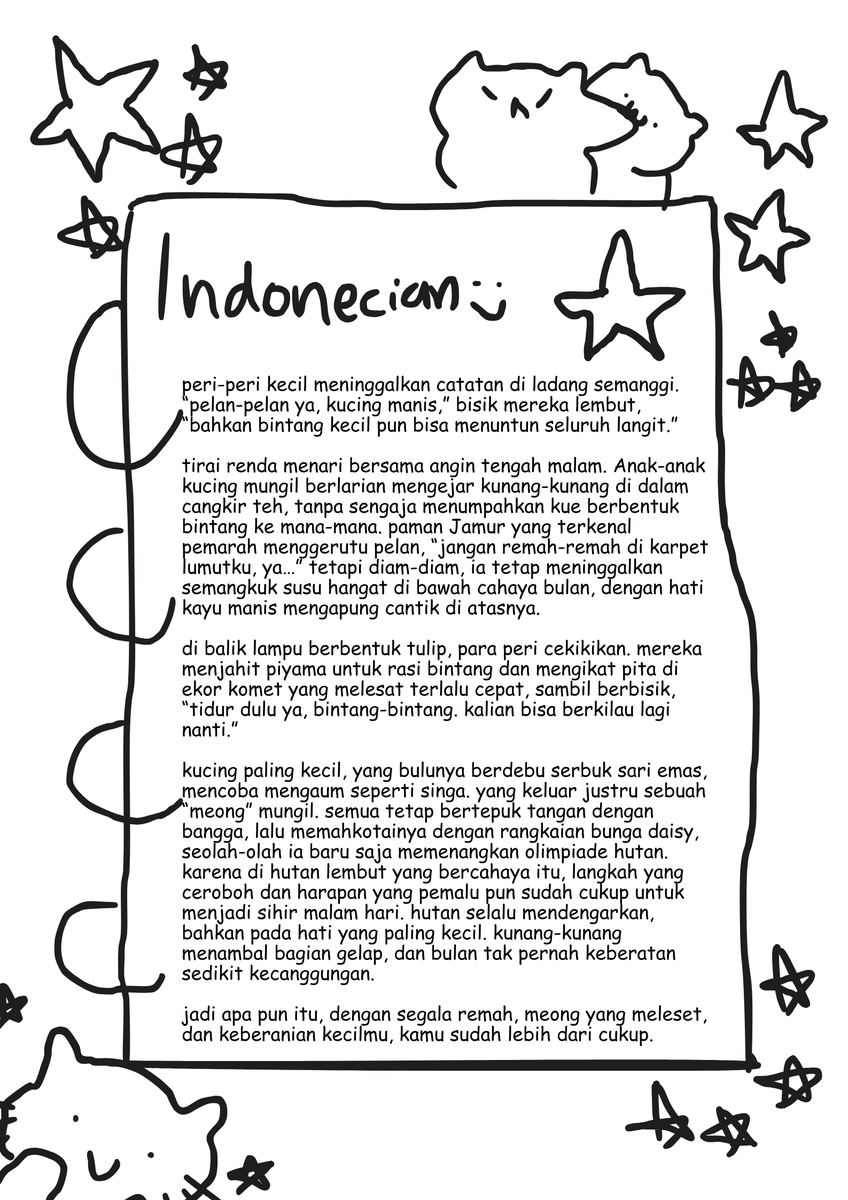 Indonecian
peri-peri kecil meninggalkan catatan di ladang semanggi.
“pelan-pelan ya, kucing manis,” bisik mereka lembut,
“bahkan bintang kecil pun bisa menuntun seluruh langit.”
tirai renda menari bersama angin tengah malam. Anak-anak
kucing mungil berlarian mengejar kunang-kunang di dalam
cangkir teh, tanpa sengaja menumpahkan kue berbentuk
bintang ke mana-mana. paman Jamur yang terkenal
pemarah menggerutu pelan, “jangan remah-remah di karpet
lumutku, ya…” tetapi diam-diam, ia tetap meninggalkan
semangkuk susu hangat di bawah cahaya bulan, dengan hati
kayu manis mengapung cantik di atasnya.
di balik lampu berbentuk tulip, para peri cekikikan. mereka
menjahit piyama untuk rasi bintang dan mengikat pita di
ekor komet yang melesat terlalu cepat, sambil berbisik,
“tidur dulu ya, bintang-bintang. kalian bisa berkilau lagi
nanti.”
kucing paling kecil, yang bulunya berdebu serbuk sari emas,
mencoba mengaum seperti singa. yang keluar justru sebuah
“meong” mungil. semua tetap bertepuk tangan dengan
bangga, lalu memahkotainya dengan rangkaian bunga daisy,
seolah-olah ia baru saja memenangkan olimpiade hutan.
karena di hutan lembut yang bercahaya itu, langkah yang
ceroboh dan harapan yang pemalu pun sudah cukup untuk
menjadi sihir malam hari. hutan selalu mendengarkan,
bahkan pada hati yang paling kecil. kunang-kunang
menambal bagian gelap, dan bulan tak pernah keberatan
sedikit kecanggungan.
jadi apa pun itu, dengan segala remah, meong yang meleset,
dan keberanian kecilmu, kamu sudah lebih dari cukup.